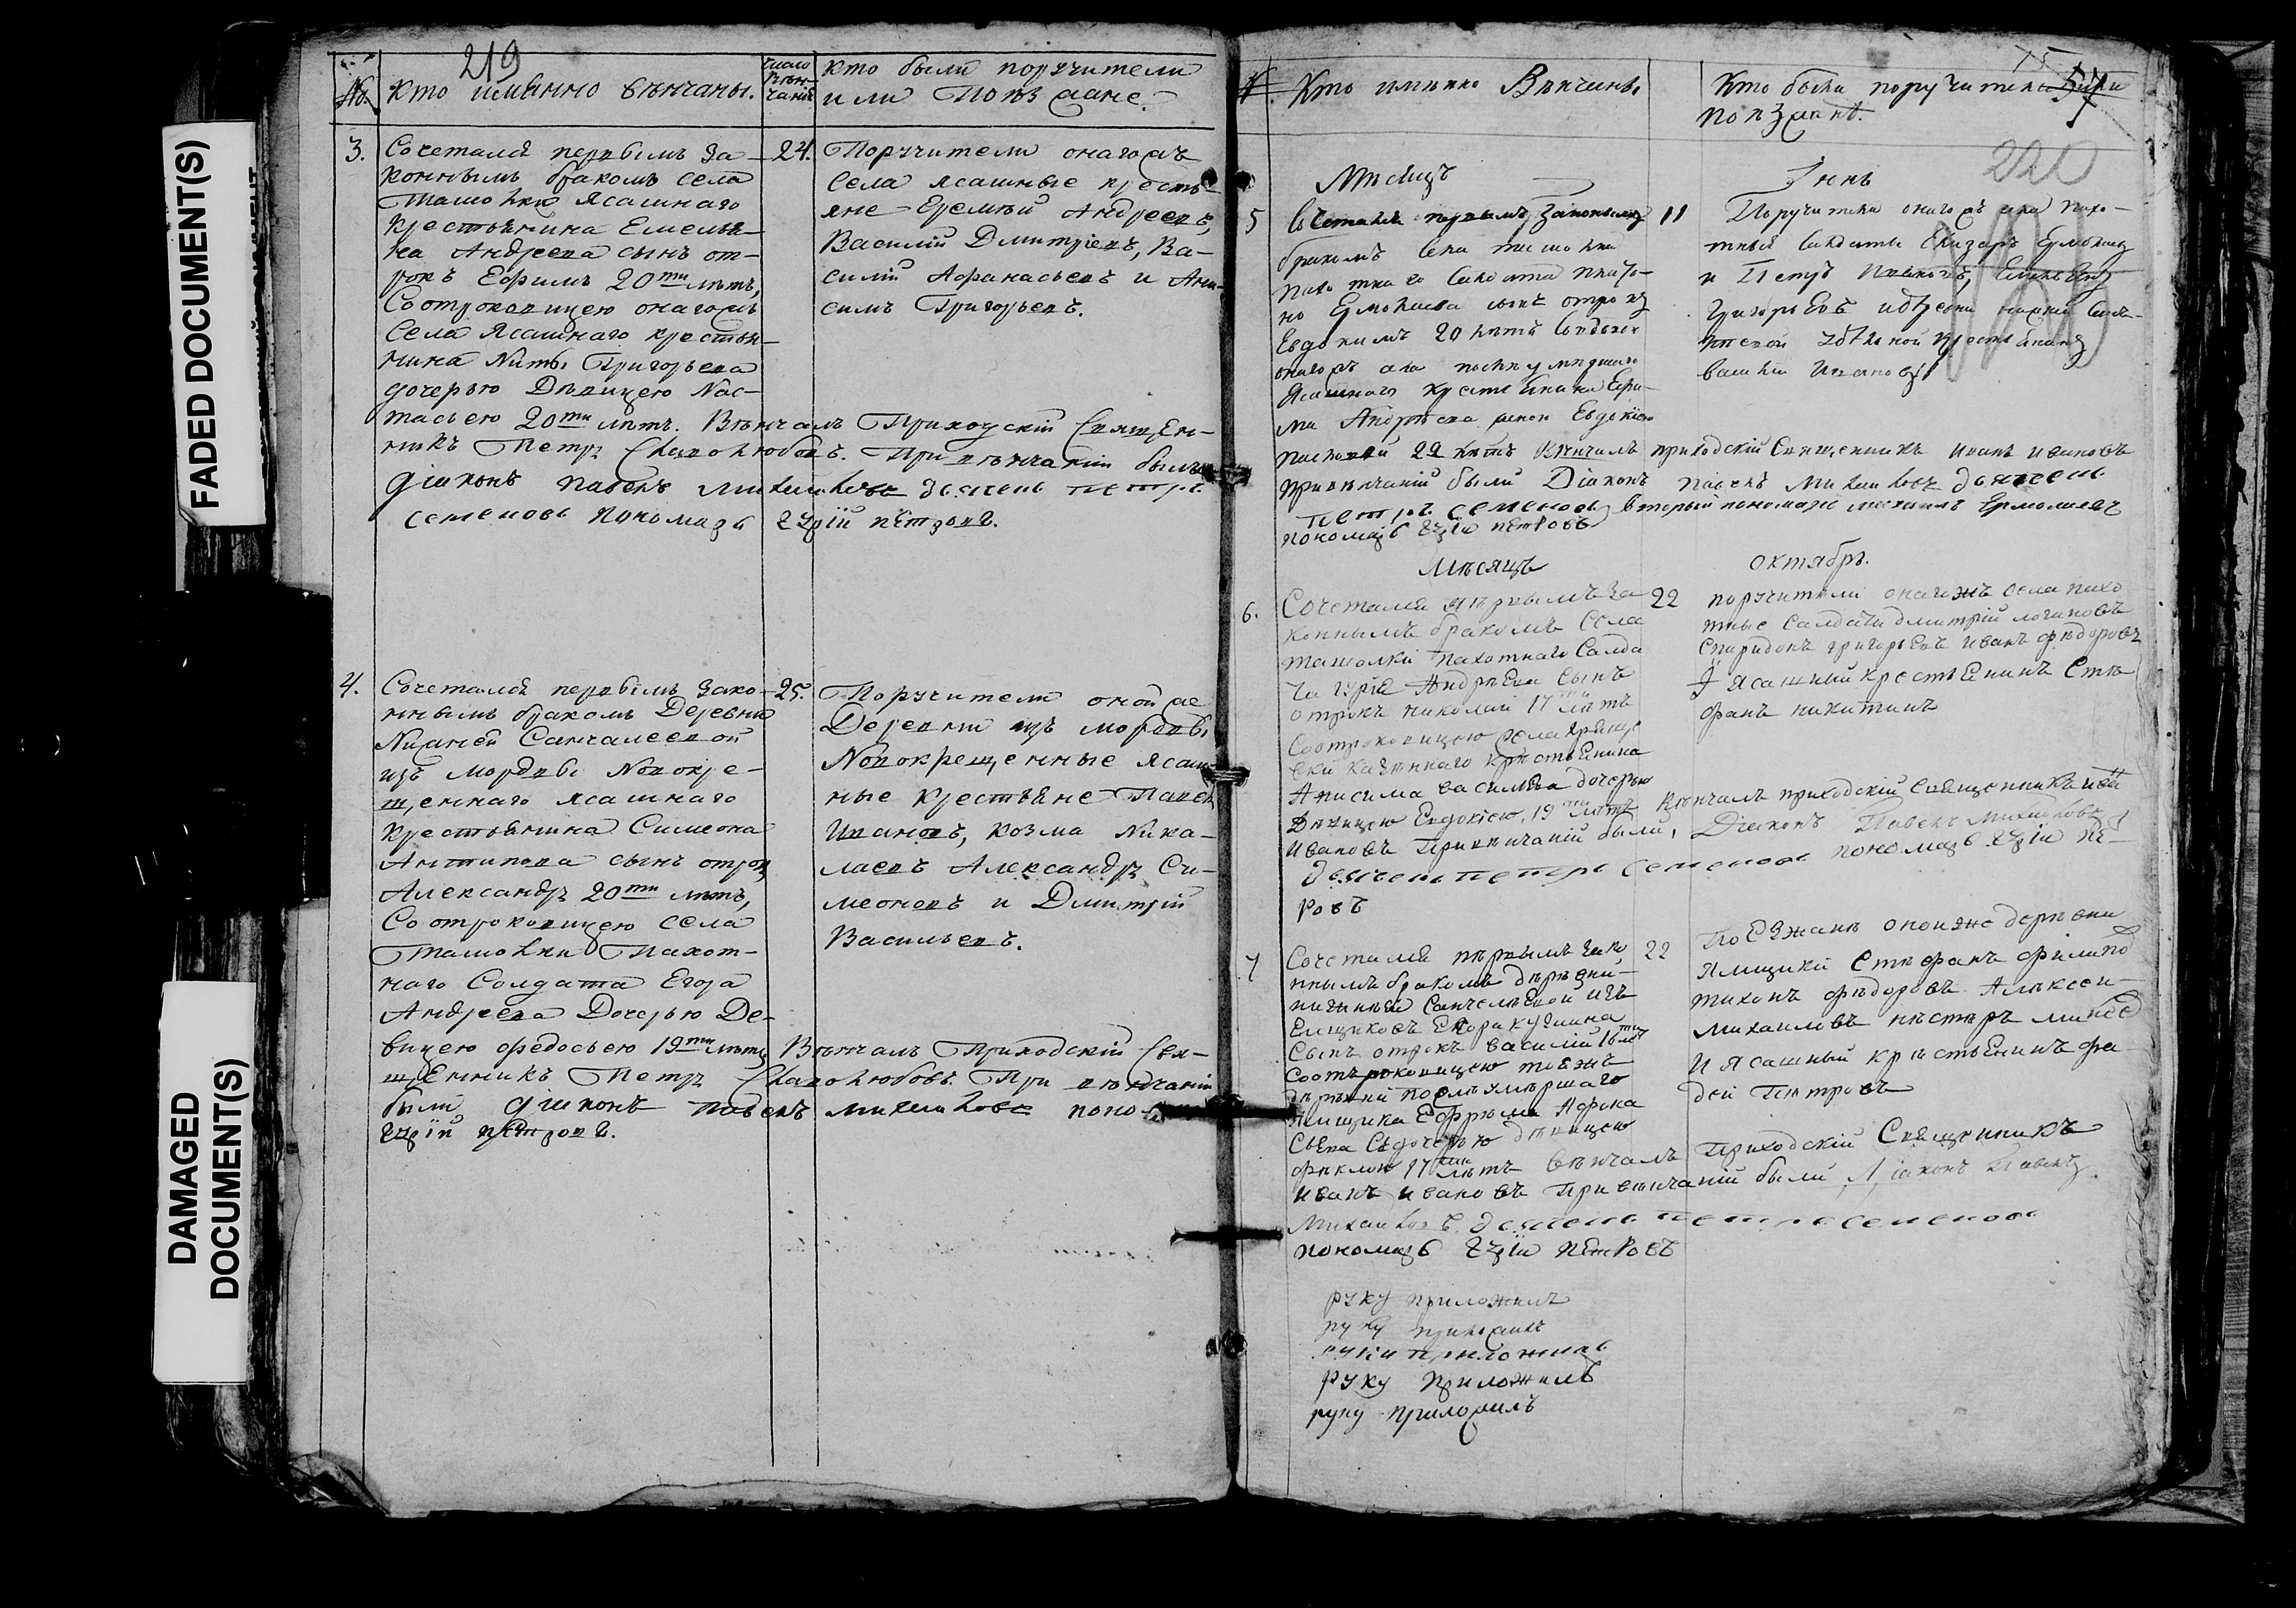 FADED DOCUMENT(S)
DAMAGED
DOCUMENT(S)
219
№. кто имянно вѣнчаны.
число
вѣн-
чанія
кто были поручители
или Поѣзжане.
3.
24.
Сочетался первымъ За-
коннымъ бракомъ села
Ташолки Ясашнаго
крестьянина Емелья-
на Андреева сынъ от-
рокъ Ефимъ 20ти лѣтъ,
Со отроковицею онагожъ
Села Ясашнаго крестья-
нина Никиты Григорьева
дочерью Дѣвицею Нас-
тасьею 20ти лѣтъ. Вѣнчалъ Приходскій Священ-
никъ Петръ Славолюбовъ. При вѣнчаніи были
діяконъ павелъ михаиловъ дьячекъ петръ
семеновъ пономарь гурій петровъ.
Поручители онагожъ
села ясашные кресть-
яне Еремѣй Андреевъ,
Василій Дмитріевъ, Ва-
силій Афанасьевъ и Ани-
симъ Григорьевъ.
4.
25.
Сочетался первымъ зако-
ннымъ бракомъ Деревни
Нижней Санчалеевой
изъ мордвы Новокре-
щеннаго ясашнаго
крестьянина Симеона
Антипова сынъ отрокъ
Александръ 20ти лѣтъ,
Со отроковицею села
Ташолки Пахот-
наго Солдата Егора
Андреева Дочерью Де-
вицею федосьею 19ти лѣтъ Вѣнчалъ Приходскій Свя-
щенникъ Петръ Славолюбовъ. При вѣнчаніи
были діяконъ павелъ михаиловъ поно
гурій петровъ.
Поручители онойже
Деревни изъ мордвы
Новокрещенные ясаш-
ные крестьяне Павелъ
Ивановъ, козма Ника-
лаевъ Александръ Си-
меоновъ и Дмитрій
Васильевъ.
57
220
№. Кто имянно Вѣнчаны
Кто были поручители или
поѣзжанѣ.
Мѣсяцъ
Іюнь
5
11
Сочетался первымъ Законнымъ
бракомъ Села ташолки
пахотнаго Салдата
Ермолаева сынъ отрокъ
Евдокимъ 20 лѣтъ
онагожъ села послѣ умершаго
Ясашнаго крестьянина
Андрѣева женою Евдокіею
22 лѣтъ Вѣнчалъ приходскій Священникъ Иванъ Ивановъ
привѣнчаніи были Діаконъ павелъ Михаиловъ дьячекъ
петръ семеновъ вторый пономарь Ермолаевъ
пономарь гурій петровъ
Поручители онагожъ села пахо-
тныя Салдаты Елизаръ Ермолаевъ
и Петръ
Григорьевъ
крестьянинъ
Ивановъ
Мѣсяцъ
октябрь.
6.
22
Сочетался пѣрвымъ за
коннымъ бракомъ Села
ташолки пахотнаго Салда
та гурія Андрѣева сынъ
отрокъ николай 17 лѣтъ
Соотроковицею села
казѣннаго крѣстьянина
Анисима василѣва дочерью
Дѣвицею Евдокіею, 19ти лѣтъ Вѣнчалъ приходскій священникъ
Ивановъ Привѣнчаніи были, Діяконъ Павелъ Михаиловъ
дьячекъ петръ семеновъ пономарь гурій пе-
ровъ
поручители онагожъ села пахо
тные салдаты дмитрій логиновъ
Спиридонъ григорьевъ Иванъ федоровъ
И ясашный крестьянинъ Сте
фанъ никитинъ
7
22
Сочетался пѣрвымъ зако
ннымъ бракомъ дѣрѣвни
нижнѣй Санчелѣевой изъ
Емщиковъ
Сынъ отрокъ василій 18 лѣт
Соотроковицею тоежъ
дѣрѣвни послѣ умѣршаго
Ямщика Ефрѣма
дочерью дѣвицею
феклою 17ти лѣтъ Вѣнчалъ Приходскій Священникъ
Иванъ Ивановъ При вѣнчаніи были Діаконъ Павелъ
Михаиловъ дьячекъ петръ семеновъ
пономарь гурій петровъ
Поѣзжанѣ онойже дерѣвни
Ямщики Стѣфанъ филипо
тихонъ фѣдоровъ Алѣксеи
михаиловъ нѣстѣръ
И Ясашный крѣстьянинъ фа
дѣй Пѣтровъ
руку приложилъ
руку приложилъ
руку приложилъ
руку приложилъ
руку приложилъ